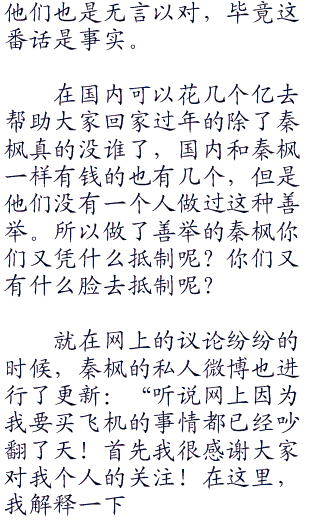 他们也是无言以对，毕竟这
番话是事实。
在国内可以花几个亿去
帮助大家回家过年的除了秦
枫真的没谁了，国内和秦枫
一样有钱的也有几个，但是
他们没有一个人做过这种善
举。所以做了善举的秦枫你
们又凭什么抵制呢？你们又
有什么脸去抵制呢？
就在网上的议论纷纷的
时候，秦枫的私人微博也进
行了更新：“听说网上因为
我要买飞机的事情都已经吵
翻了天！首先我很感谢大家
对我个人的关注！在这里，
我解释一下